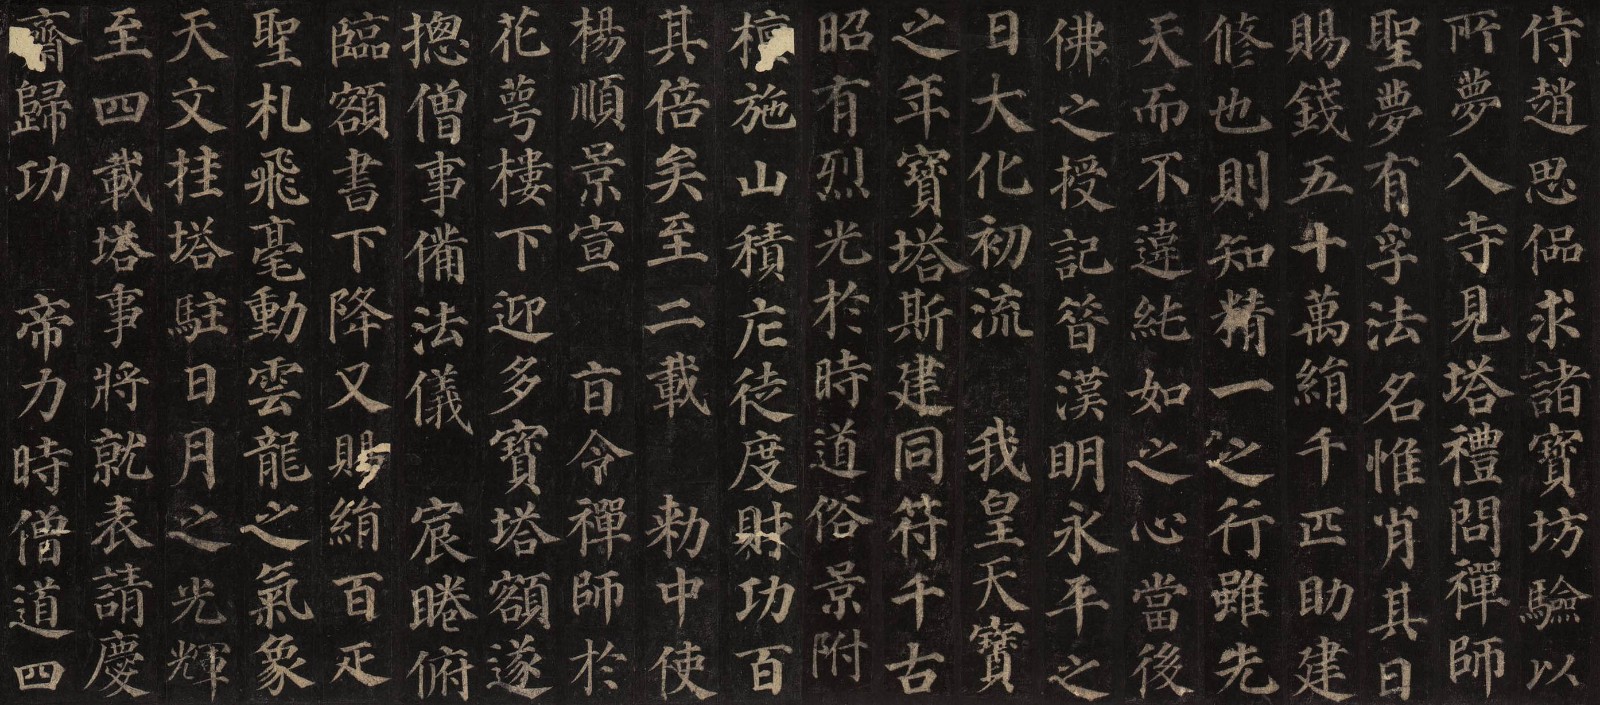 侍趙思侣求諸寶坊驗以
所夢入寺見塔禮問禪師
聖夢有孚法名惟肖其日
賜錢五十萬絹千匹助建
修也則知精一之行雖先
天而不違純如之心當後
佛之授記昔漢明永平之
日大化初流 我皇天寶
之年寶塔斯建同符千古
昭有烈光於時道俗景附
檀施山積庀徒度財功百
其倍矣至二載 勑中使
楊順景宣 㫖令禪師於
花萼樓下迎多寶塔額遂
揔僧事備法儀 宸睠俯
臨額書下降又賜絹百疋
聖札飛毫動雲龍之氣象
天文挂塔駐日月之光輝
至四載塔事將就表請慶
齋歸功 帝力時僧道四